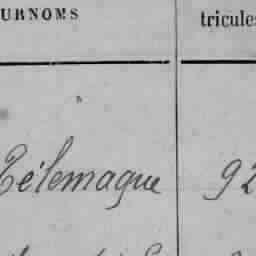 URNOMS tricules
Télemaque 92